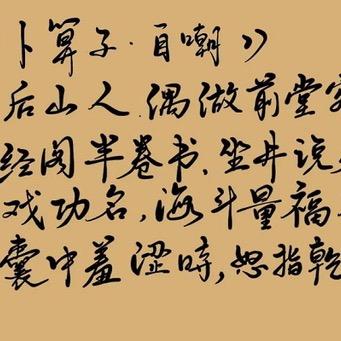 卜算子·自嘲》
后山人，偶做前堂客
经阁半卷书，坐井说
戏功名，海斗量福
囊中羞涩时，怒指乾